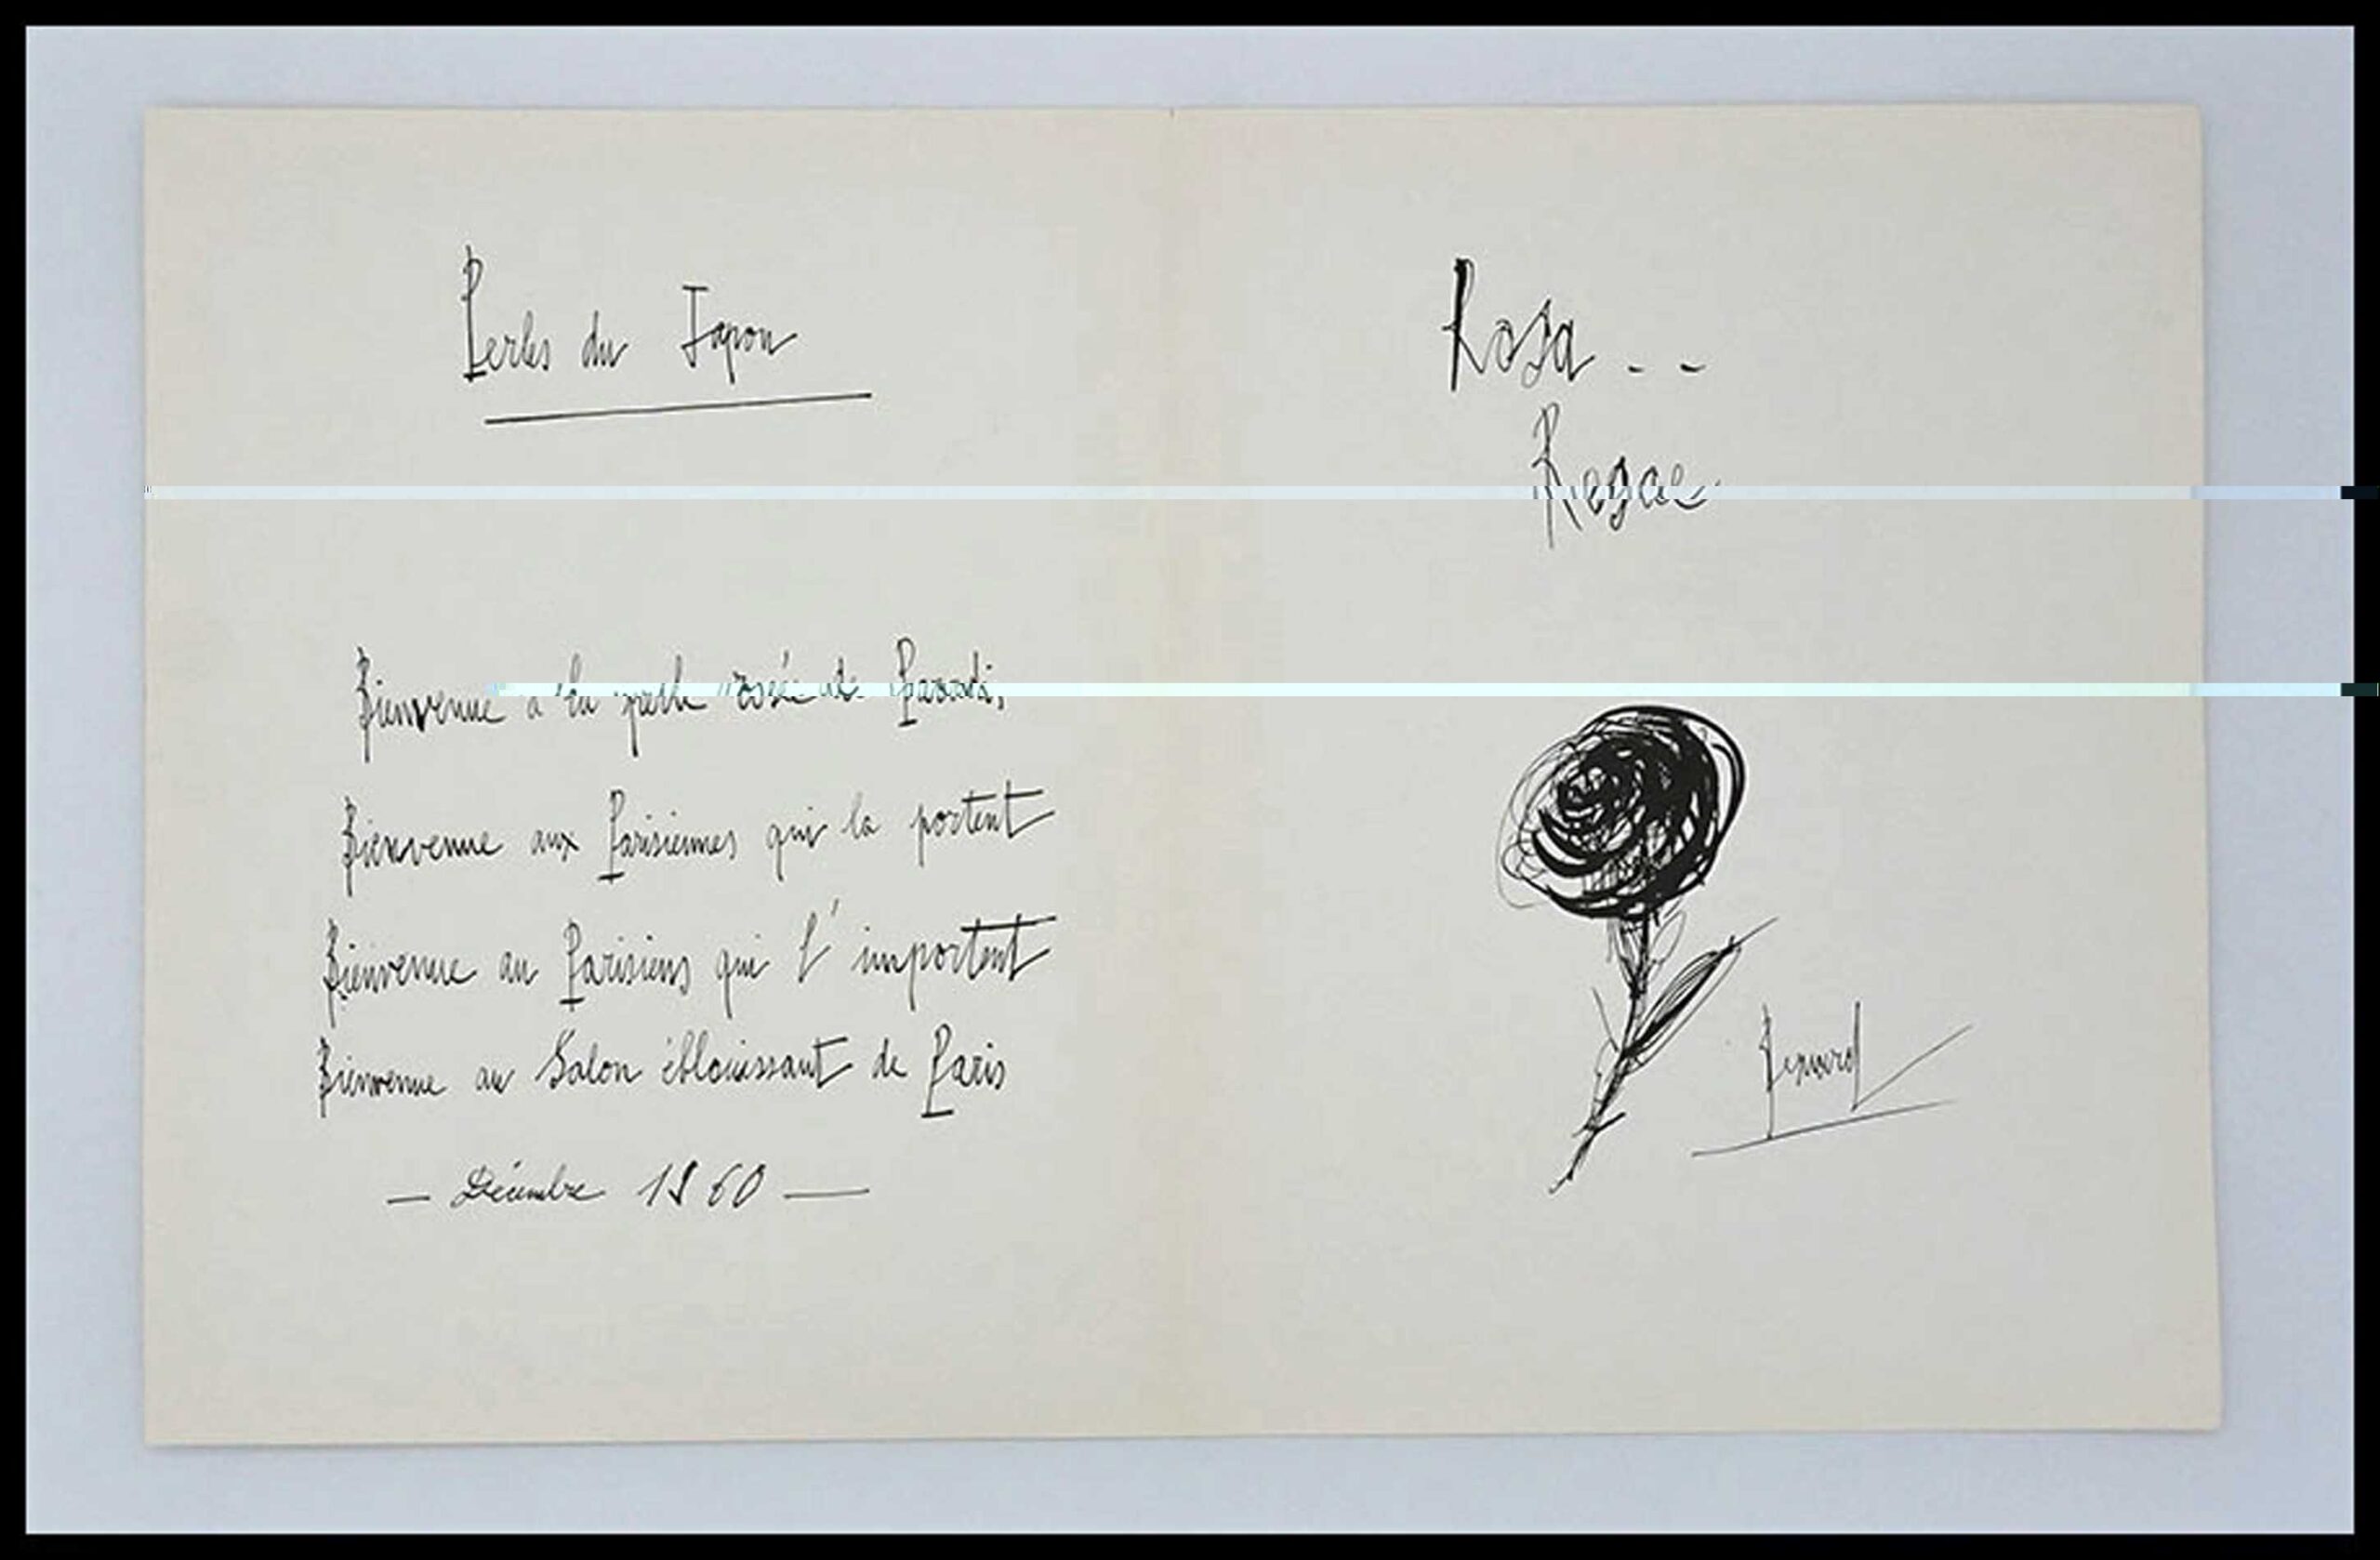 Perles du Japon
Bienvenue à la perle rosée de
Bienvenue aux Parisiennes qui la portent
Bienvenue au Parisiens qui l'importent
Bienvenue au Salon éblouissant de Paris
— Décembre 1960 —
Rosa - -
Regae